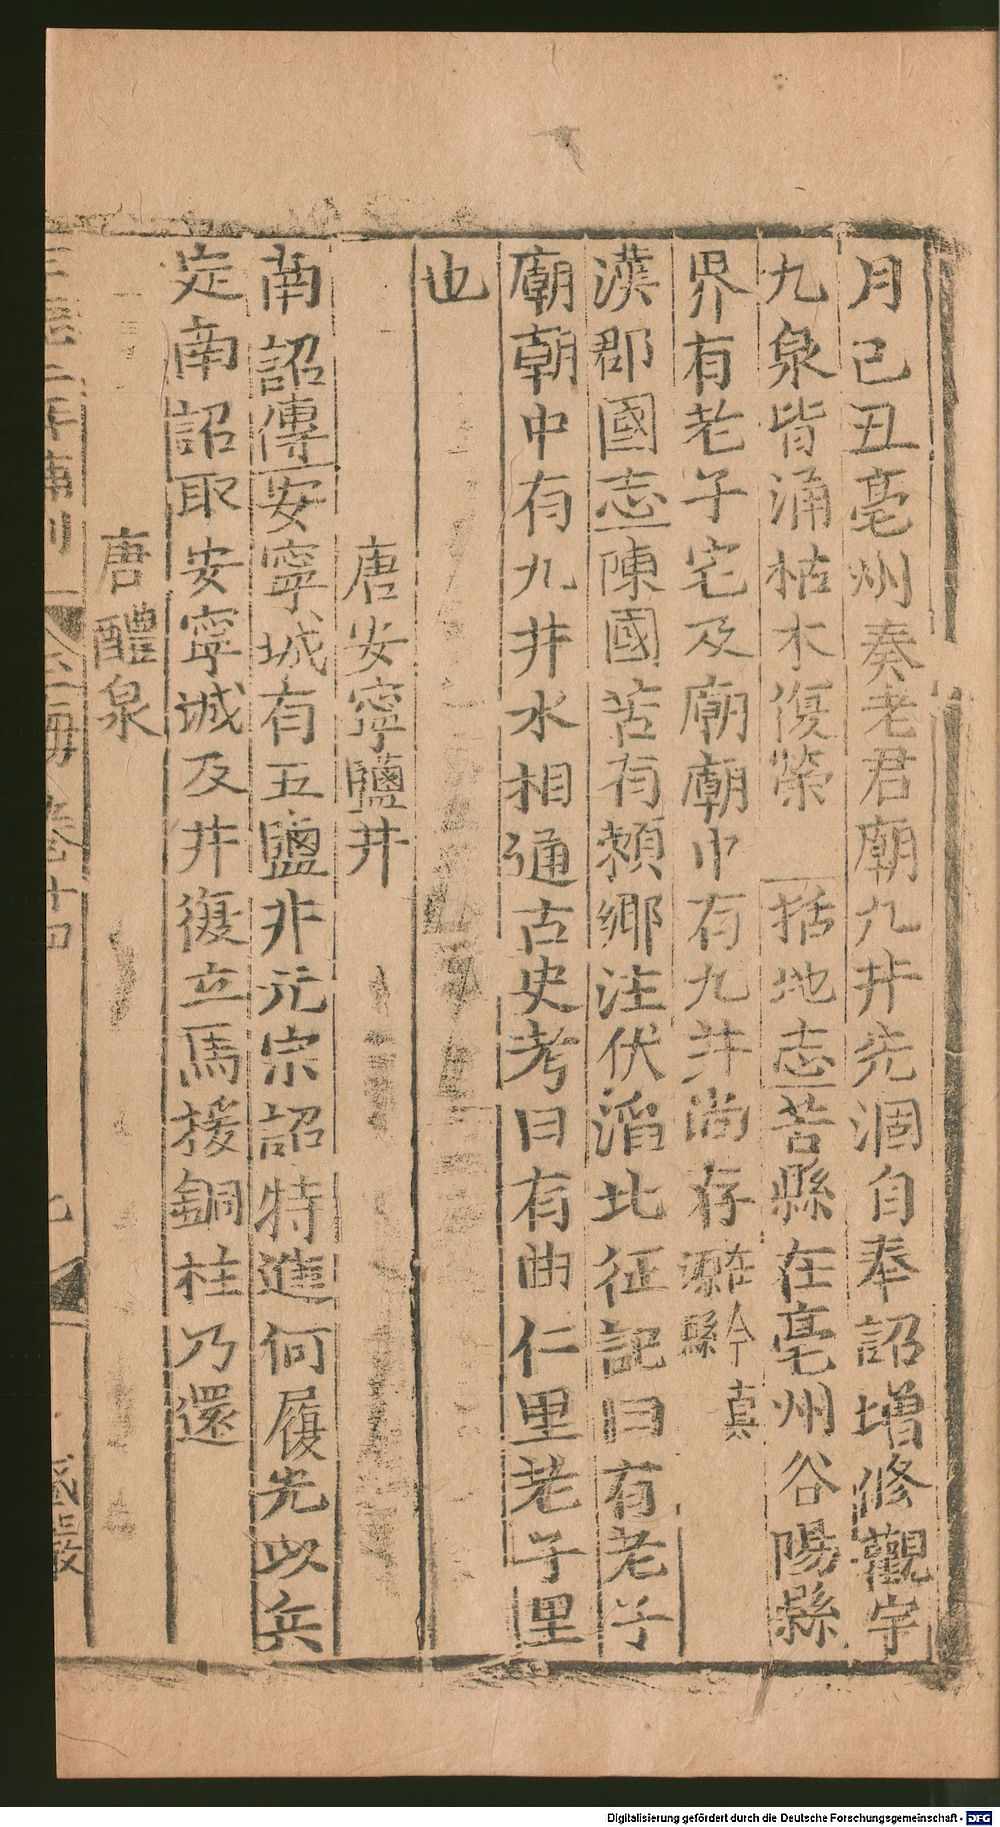 月己丑亳州奏老君廟九井先涸自奉詔增修觀宇
九泉皆涌枯木復榮 括地志苦縣在亳州谷陽縣
界有老子宅及廟廟中有九井尚存在今真源縣
漢郡國志陳國苦有賴鄉注伏滔北征記曰有老子
廟朝中有九井水相通古史考曰有曲仁里老子里
也
唐安寧鹽井
南詔傳安寧城有五鹽井元宗詔特進何履光以兵
定南詔取安寧城及井復立馬援銅柱乃還
唐醴泉
玉海 卷十四
Digitalisierung gefördert durch die Deutsche Forschungsgemeinschaft - DFG